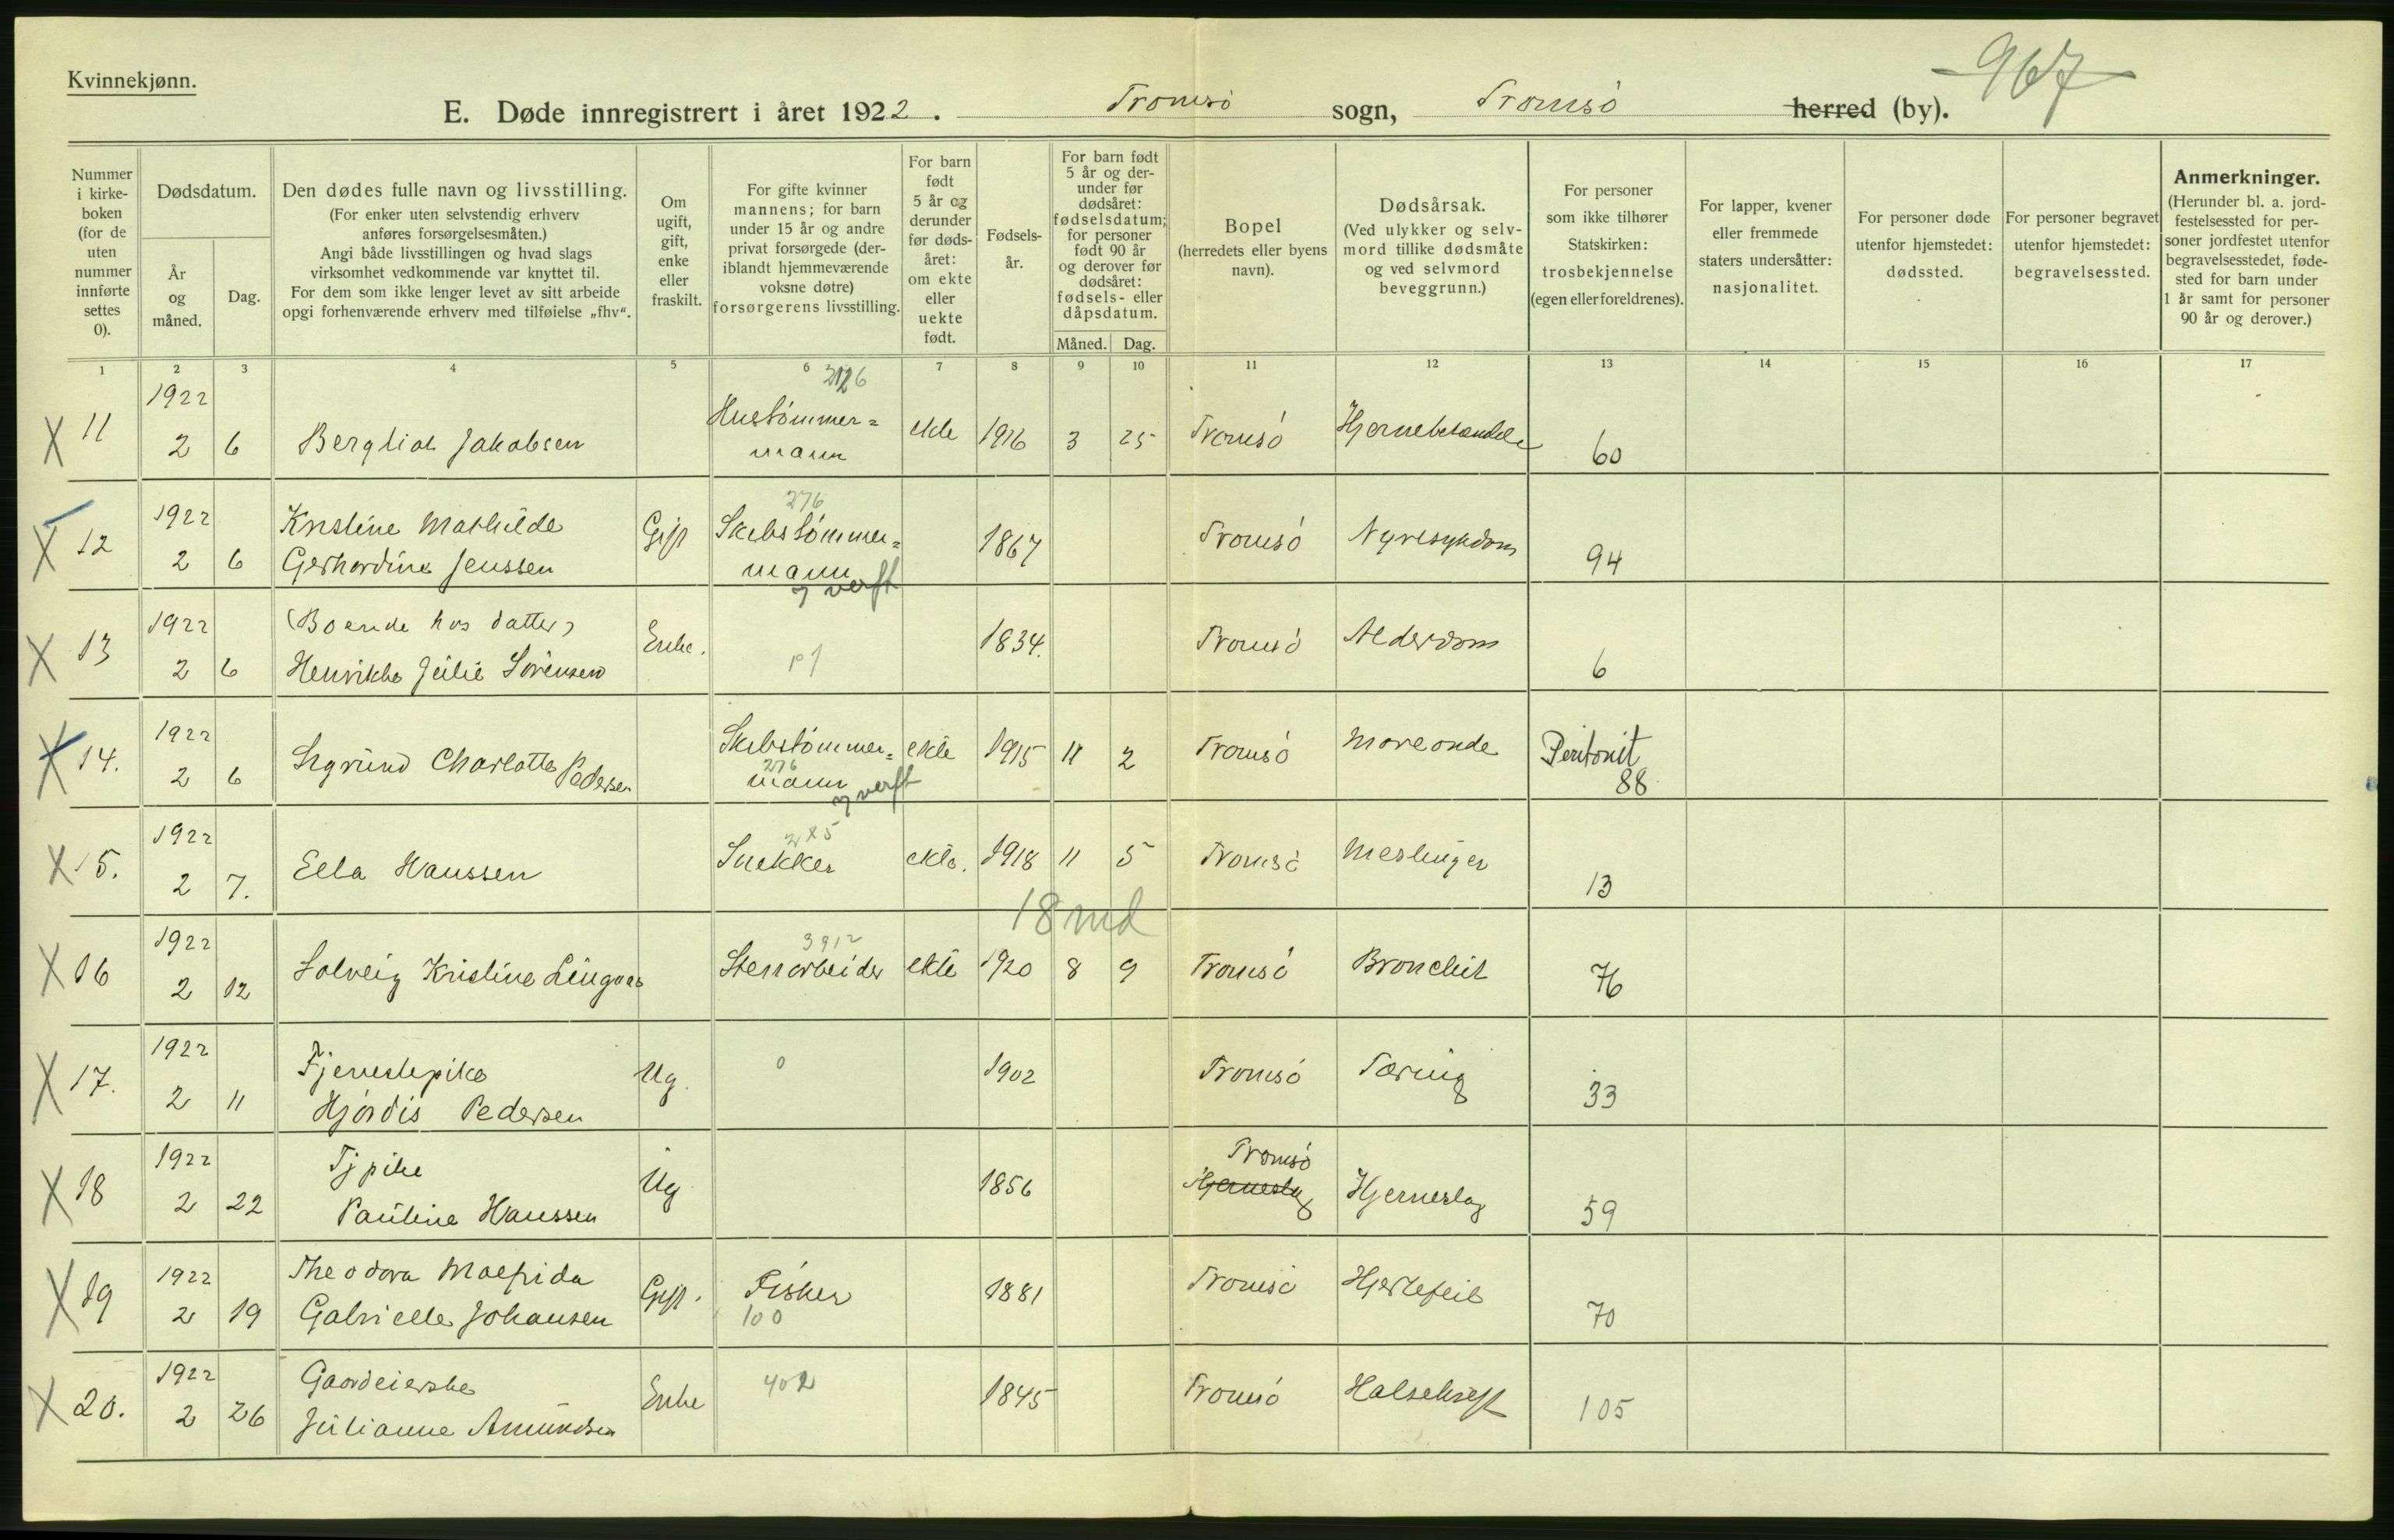 Kvinnekjønn.
967
E. Døde innregistrert i året 1922. Tromsö sogn, Tromsö herred (by).
Nummer i kirke- boken (for de uten nummer innførte settes 0).
Dødsdatum.
År og måned.
Dag.
Den dødes fulle navn og livsstilling.
(For enker uten selvstendig erhverv
anføres forsørgelsesmåten.)
Angi både livsstillingen og hvad slags
virksomhet vedkommende var knyttet til.
For dem som ikke lenger levet av sitt arbeide
opgi forhenværende erhverv med tilføielse „fhv“.
Om ugift, gift, enke eller fraskilt.
For gifte kvinner mannens; for barn under 15 år og andre privat forsørgede (der- iblandt hjemmeværende voksne døtre) forsørgerens livsstilling.
For barn født 5 år og derunder før døds- året: om ekte eller uekte født.
Fødsels- år.
For barn født 5 år og der- under før dødsåret: fødselsdatum; for personer født 90 år og derover før dødsåret: fødsels- eller dåpsdatum.
Måned. Dag.
Bopel
(herredets eller byens navn).
Dødsårsak.
(Ved ulykker og selv- mord tillike dødsmåte og ved selvmord beveggrunn.)
For personer som ikke tilhører Statskirken: trosbekjennelse (egen eller foreldrenes).
For lapper, kvener eller fremmede staters undersåtter: nasjonalitet.
For personer døde utenfor hjemstedet: dødssted.
For personer begravet utenfor hjemstedet: begravelsessted.
Anmerkninger.
(Herunder bl. a. jord- festelsessted for per- soner jordfestet utenfor begravelsesstedet, føde- sted for barn under 1 år samt for personer 90 år og derover.)
1 2 3 4 5 6 7 8 9 10 11 12 13 14 15 16 17
X 11 1922 2 6 Bergliot Jakobsen Hustömmer= mann ekte 1916 3 25 Tromsö Hjernebetændelse 60
X 12 1922 2 6 Kristine Mathilde Gerhardine Jenssen Gift 276 Skibstömmer= mann verft 1867 Tromsö Nyresykdom 94
X 13 1922 2 6 (Boende hos datter) Henrikke Julie Sörensen Enke. 1834. Tromsö Alderdom 6
X 14. 1922 2 6 Sigrund Charlotte Pedersen Skibstömmer= 276 mann verft ekte 1915 11 2 Tromsö Maveonde Peritonit 88
X 15. 1922 2 7. Ella Hanssen Snekker ekte. 1918 11 5 Tromsö Meslinger 13
18 md
X 16 1922 2 12 Solveig Kristine Lingvas 3912 Stenarbeider ekte 1920 8 9 Tromsö Bronchit 76
X 17. 1922 2 11 Tjenestepike Hjördis Pedersen Ug. 0 1902 Tromsö Tæring 33
X 18 1922 2 22 Tjpike Pauline Hanssen Ug 1856 Tromsö Hjerneslag Hjerneslag 59
X 19 1922 2 19 Theodora Malfrida Gabrielle Johansen Gift. Fisker 100 1881 Tromsö Hjertefeil 70
X 20. 1922 2 26 Gaardeierske Julianne Amundsen Enke 402 1845 Tromsö Halsekreft 105